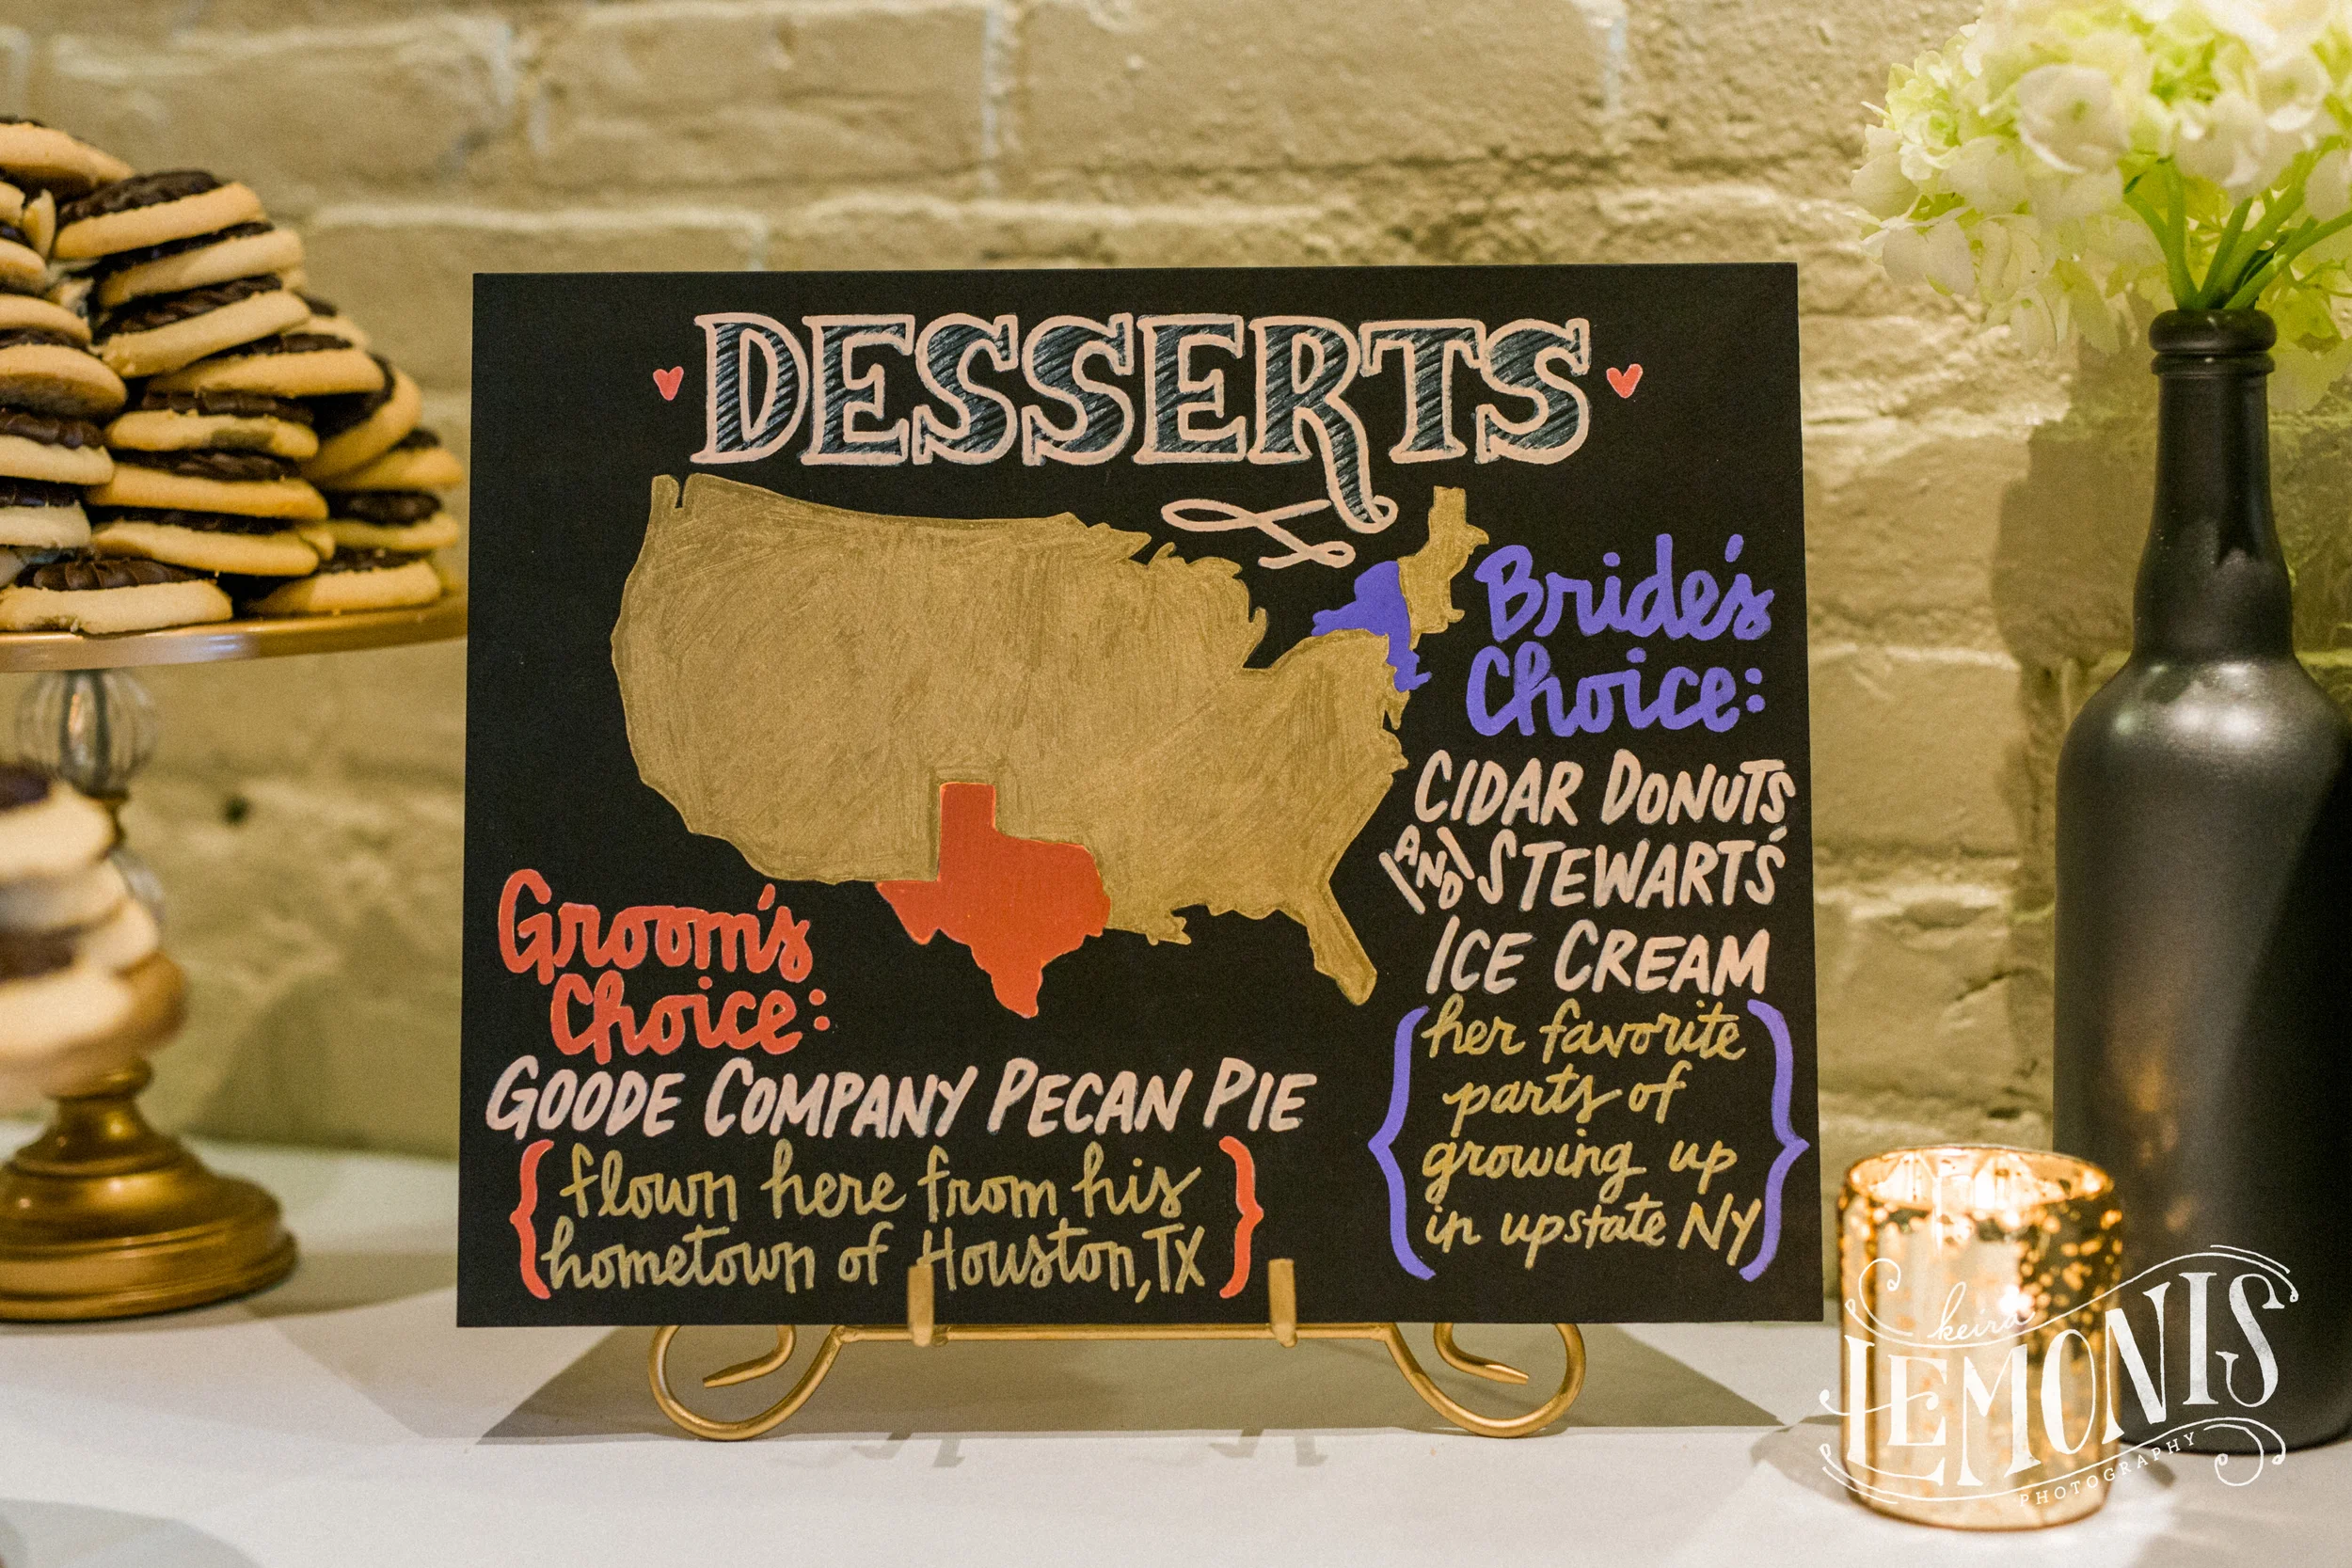 DESSERTS
Bride's
Choice:
CIDAR DONUTS
AND STEWARTS'
ICE CREAM
her favorite
parts of
growing up
in upstate NY
Groom's
Choice:
GOODE COMPANY PECAN PIE
flown here from his
hometown of Houston, TX
keira
LEMONIS
PHOTOGRAPHY